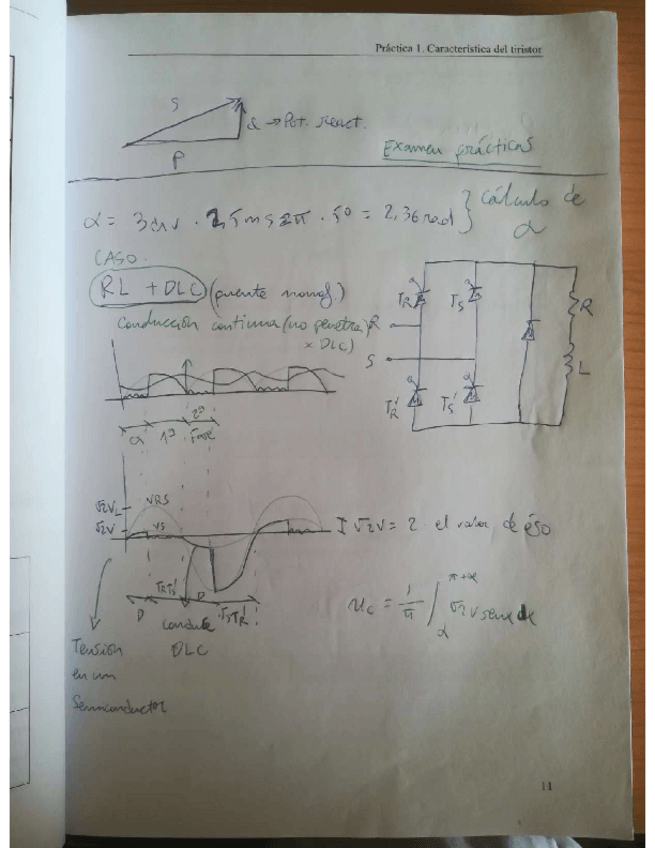 Práctica 1. Característica del tiristor
S
Q → Pot. react.
P
Examen prácticas
α = 3 div · 2,5ms 2π · 50 = 2,36 rad } Cálculo de α
CASO
RL + DLC (puente monof.)
Conducción continua (no penetra
x DLC)
TR
TS
R
R
S
L
TR'
TS'
α 1º 2º Fase
√2VL
VRS
√2V
VS
I √2V = 2 el valor de eso
TRTS'
D
D
TSTR'
conduce
DLC
Uc = 1/π ∫ α π+α √2 V senα dα
Tensión
en un
Semiconductor
11